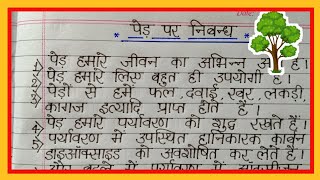 पेड़ पर निबन्ध
1) पेड़ हमारे जीवन का अभिन्न अंग है।
2) पेड़ हमारे लिए बहुत ही उपयोगी है।
3) पेड़ों से हमें फल, दवाई, रबर, लकड़ी,
कागज इत्यादि प्राप्त होते हैं।
4) पेड़ हमारे पर्यावरण को शुद्ध रखते हैं।
5) पर्यावरण में उपस्थित हानिकारक कार्बन
डाइऑक्साइड को अवशोषित कर लेते है।
और बदले में पर्यावरण में ऑक्सीजन